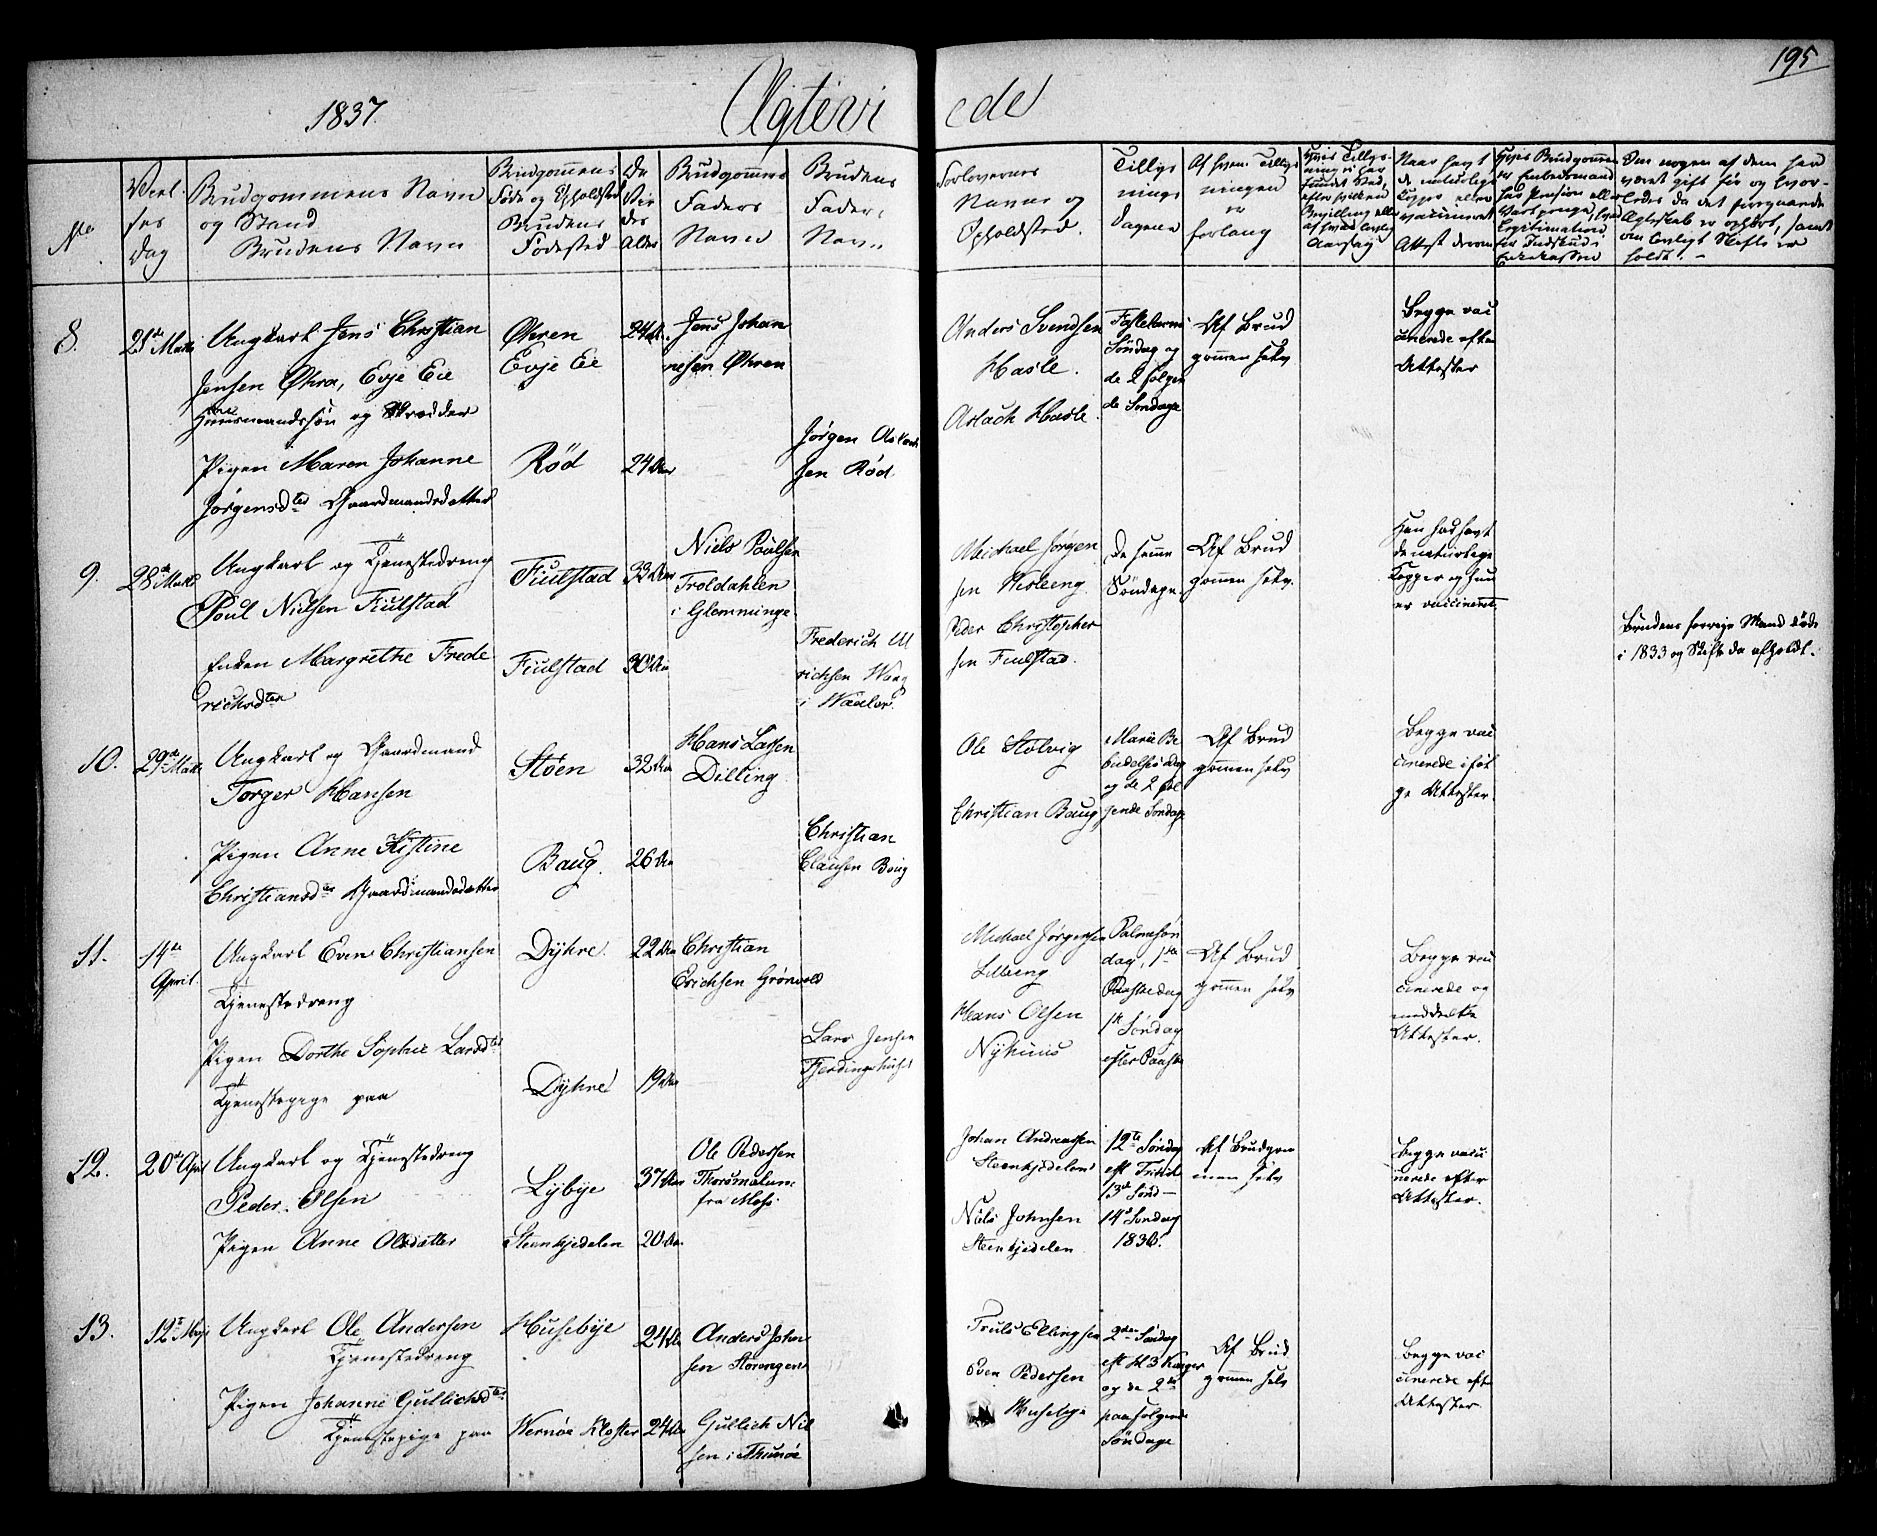 195
1837.
Agtevi ede
No
Viel-
ses
dag
Brudgommens Navn
og Stand
Brudens Navn
Brudgommens
Føde og Opholdsted
Brudens
Fødested
De
Vie
des
Alder
Brudgommens
Faders
Navn
Brudens
Faders
Navn
Forlovernes
Navne og
Opholdsted.
Tillys
nings
dagene
Af hvem Tillys
ningen
er
forlangt
Naar havt
de naturlige
Kopper eller
vaccineret
Attest derom
Om nogen af dem har
været gift før og hvor-
ledes da det foregaaende
Ægteskab er ophørt, samt
om lovligt Skifte er
holdt. -
8.
Ungkarl Jens Christian
Jensen Øhra, Evje Eie
Huusmandssøn og Skrædder
Pigen Maren Johanne
Jørgensdter Gaardmandsdatter
Øhren
Evje Eie
Rød
24 Aar
24 Aar
Jens Johan
nesen Øhren
Jørgen
sen Rød
Anders Svendsen
Hasle.
Aslach Hasle
Fastelavns
Søndag og
de 2 følgen
de Søndage
Af Brud
gommen selv
Begge vac
cinerede efter
Attester
9.
28de Marts
Ungkarl og Tjenestedreng
Poul Nielsen Fiulstad
Enken Margrethe Frede
richsdter
Fiulstad
Fiulstad
33 Aar
30 Aar
Niels Poulsen
Troldahlen
i Glemminge
Frederich Ul
richsen
i Waaler.
Michael Jørgen
sen
Peder Christopher
sen Fiulstad.
De samme
Søndage.
Af Brud
gommen selv.
Han har havt
de naturlige
Kopper og hun
er vaccineret.
Brudens forrige Mand døde
i 1833 og Skifte da afholdt.
10.
29de Marts
Ungkarl og Gaardmand
Torger Hansen
Pigen Anne Kistine
Christiansdter Gaardmandsdatter
Støen
Baug.
32 Aar
26 Aar
Hans Larsen
Dilling
Christian
Clausen Boug
Ole Stolvig
Christian Baug
Mariæ Be
budelses dag
og de 2 føl
gende Søndage
Af Brud
gommen selv
Begge vac
cinerede iføl
ge Attester.
11.
14de
April.
Ungkarl Even Christiansen
Tjenestedreng
Pigen Dorthe Sophie Larsdter
Tjenestepige paa
Dyhre.
Dyhre
22 Aar
19 Aar
Christian
Erichsen Grønvold
Lars Jensen
Fjerdingehuset
Michael Jørgensen
Hans Olsen
Nyhuus
Palmesøn
dag, 1ste
Paaskedag
1ste Søndag
efter Paaske
Af Brud
gommen selv
Begge vac
cinerede og
meddeelte
Attester.
12.
20de April
Ungkarl og Tjenestedreng
Peder Olsen
Pigen Anne Olsdatter
Lybye
Steenkjedelen
37 Aar
20 Aar
Ole Pedersen
fra Moss
Johan Andreassen
Steenkjedelen
Niels Johnsen
Steenkjedelen
12te Søndag
eft Trinit
13de Sønd-
14de Søndag
1836.
Af Brudgom
men selv
Begge vacci
nerede efter
Attester.
13.
12te Maji
Ungkarl Ole Andersen
Tjenestedreng
Pigen Johanne Gullichsdter
Tjenestepige paa
Husebye
Wernøe Kloster
24 Aar
24 Aar
Anders John
sen Storengen
Gullich Niel
sen i Thunøe
Truls Ellingsen
Even Pedersen
Huseby
2den Søndag
eft Hl 3 Konger
og de 2de
paafølgende
Søndage
Af Brud
gommen selv
Begge vac
cinerede efter
Attester